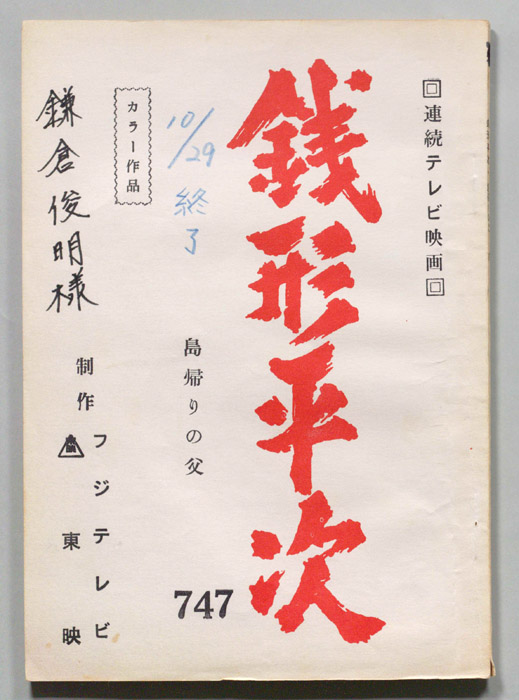 回連続テレビ映画回
銭形平次
10/29
終了
島帰りの父
747
カラー作品
鎌倉俊明様
制作
フジテレビ
東映